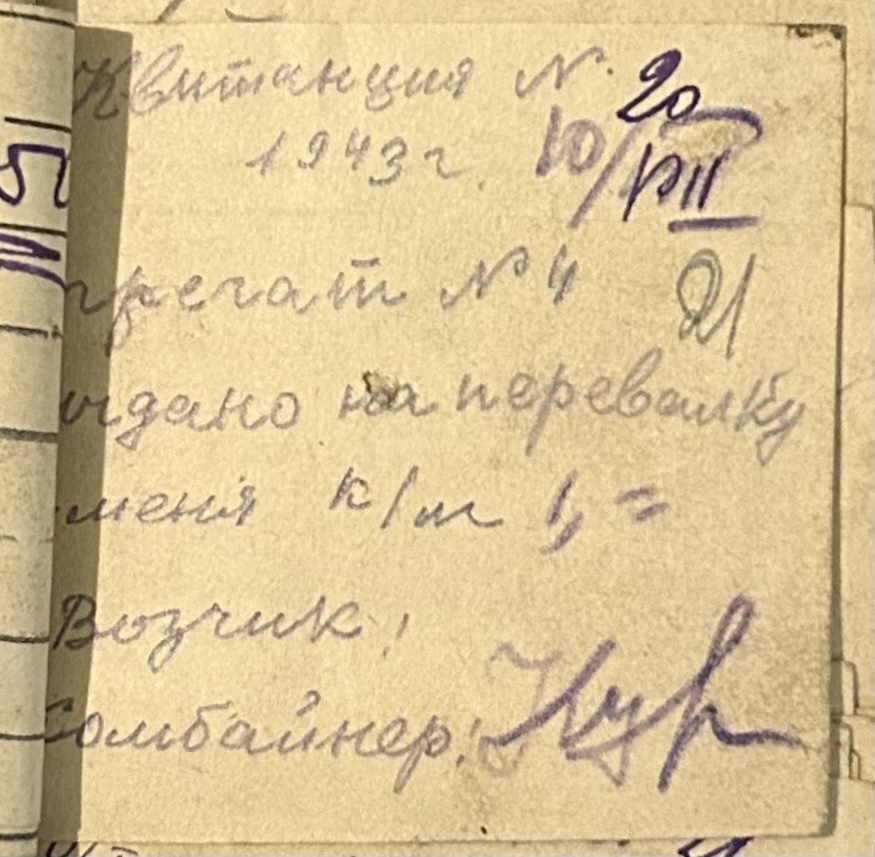 Квитанция №. 20
1943 г. 10/VIII
грегат № 4 21
ыдано на перевалку
меня к/м 1, =
Возчик:
Комбайнер: